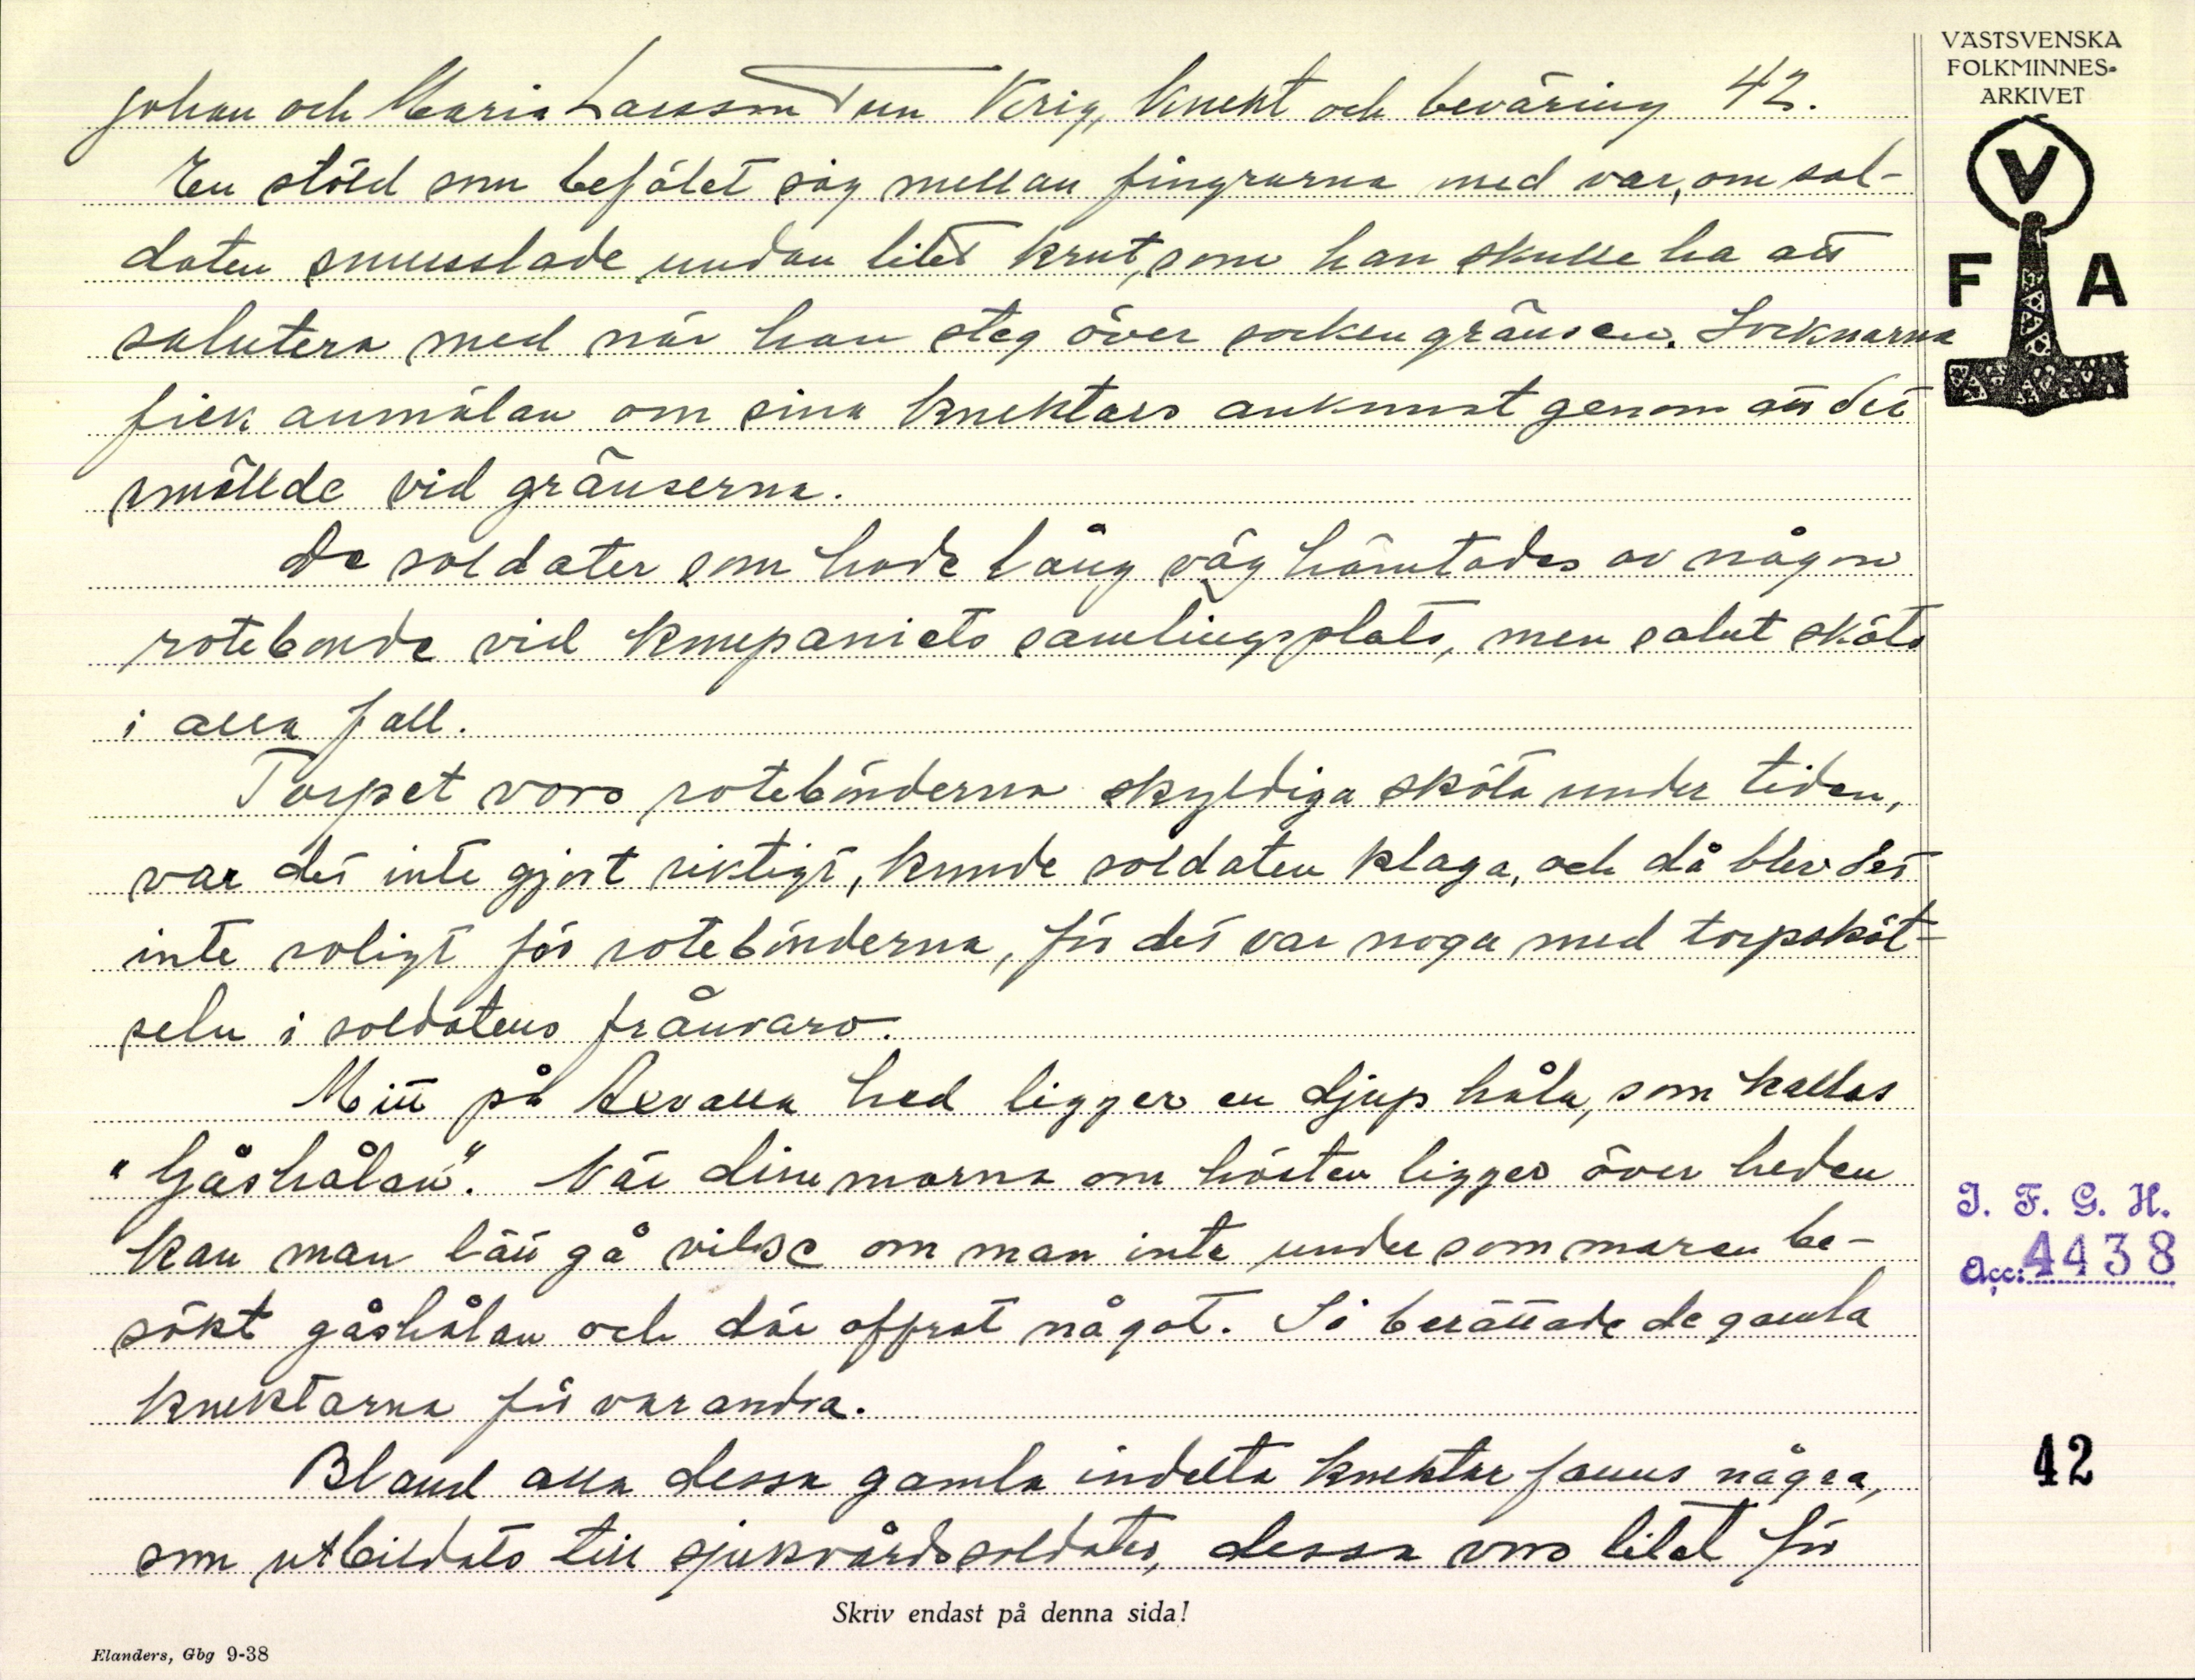 VÄSTSVENSKA
FOLKMINNES-
ARKIVET
V
F A
Johan och Maria Larsson Tun Krig, knekt och beväring 42.
En stöld som befälet såg mellan fingrarna med var, om sol-
daten smusslade undan litet krut, som han skulle ha att
salutera med när han steg över sockengränsen. Socknarna
fick anmälan om sina knektars ankomst genom att det
smällde vid gränserna.
De soldater som hade lång väg hämtades av någon
rotebonde vid kompaniets samlingsplats, men salut sköts
i alla fall.
Torpet voro rotebönderna skyldiga sköta under tiden,
var det inte gjort riktigt, kunde soldaten klaga, och då blev det
inte roligt för rotebönderna, för det var noga med torpsköt-
seln i soldatens frånvaro.
Mitt på Axvalla hed ligger en djup håla, som kallas
"Gåshålan". När dimmorna om hösten ligger över heden
kan man lätt gå vilse om man inte under sommaren be-
sökt gåshålan och där offrat något. Så berättade de gamla
knektarna för varandra.
Bland alla dessa gamla indelta knektar fanns några,
som utbildats till sjukvårdssoldater, dessa voro litet för
I. F. G. H.
Acc: 4438
42
Skriv endast på denna sida!
Elanders, Gbg 9-38